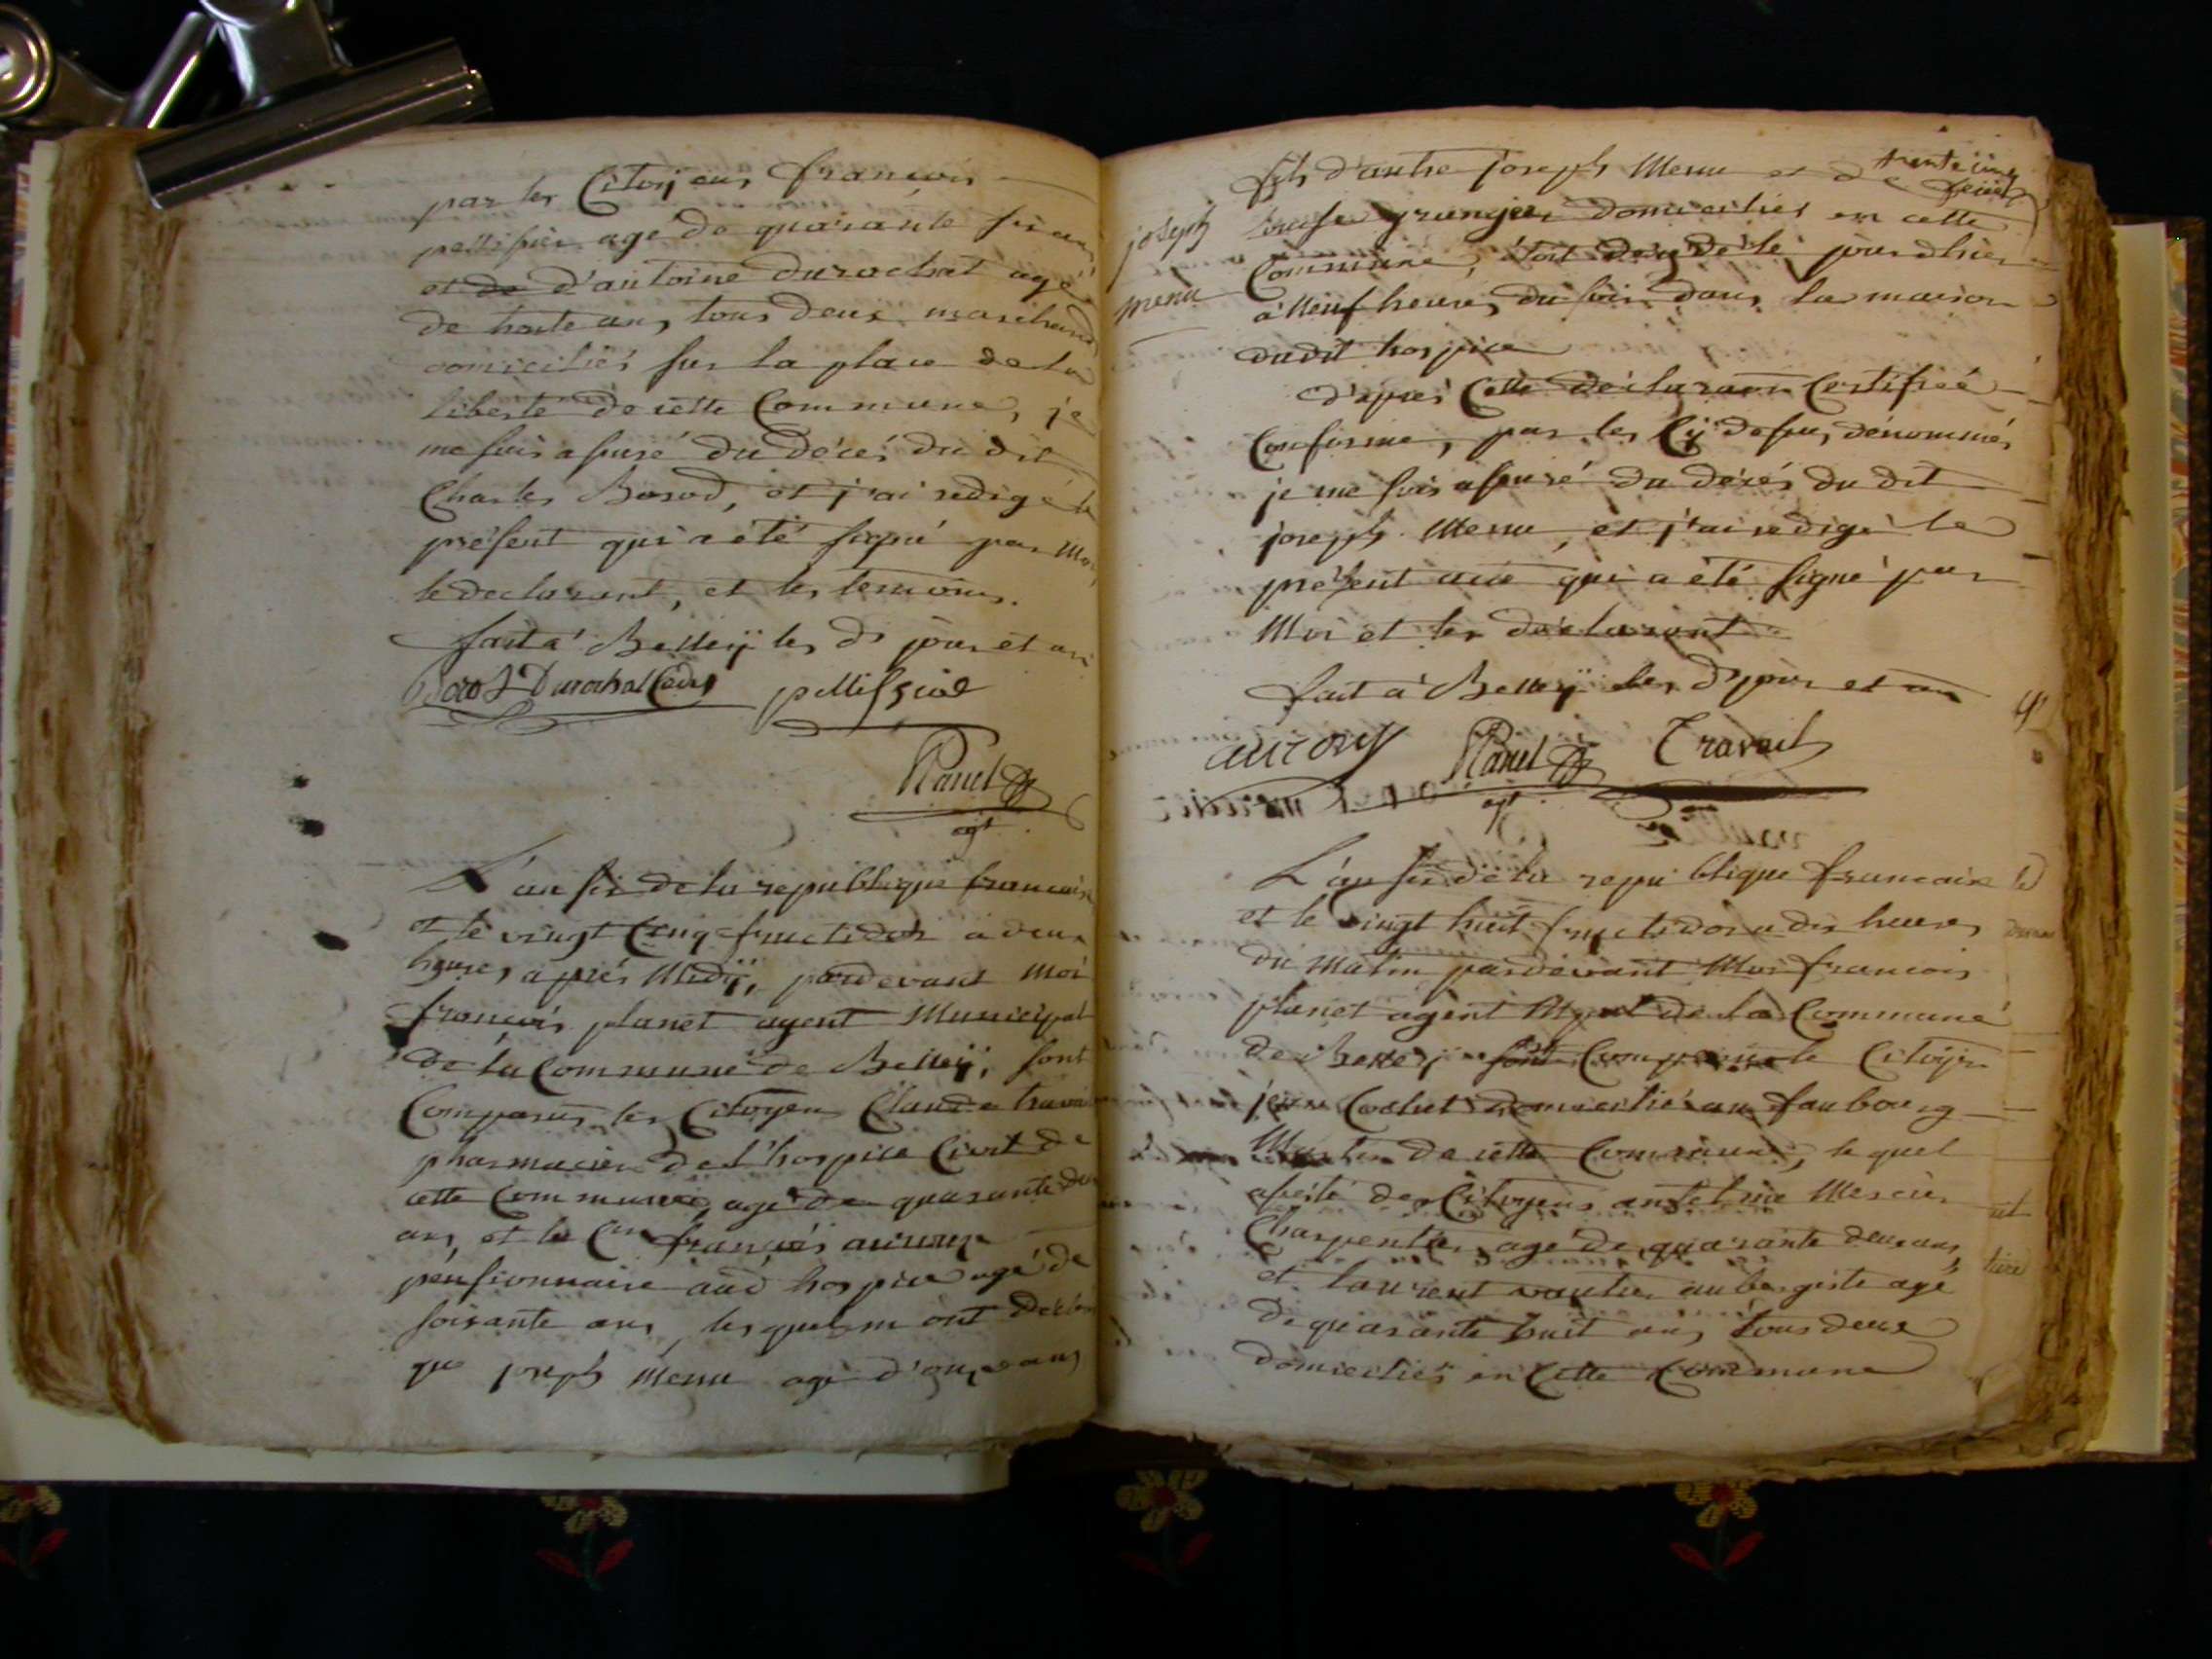 par les Citoyens françois
pellissier agé de quarante six ans,
et de d'antoine Durochat agé
de trente ans, tous deux marchands
domiciliés sur la place de la
liberté de cette Commune, je
me suis assuré du décés du dit
Charles Borod, et j'ai redigé le
présent qui a été signé par moi,
le declarant, et les temoins.
fait à Belley les d. jour et an
Durochat Cadet pellissier
Planet
agt
L'an six de la republique francaise
et le vingt Cinq fructidor à deux
heures après Midy, pardevant moi
francois planet agent Municipal
de la Commune de Belley, sont
Comparus les Citoyens Claude travail
pharmacien de l'hospice Civil de
cette Commune, agé de quarante deux
ans, et le Cen françois
pensionnaire aud hospice agé de
soixante ans, lesquels m'ont déclaré
que joseph Menu agé d'onze ans
trente cinq
joseph
menu
fils d'autre joseph Menu et de
grangier domiciliés en cette
Commune, étoit décédé le jour d'hier
à Neuf heures du soir dans la maison
dudit hospice
D'après Cette déclaraon Certifiée
Conforme, par les Cy dessus denommés,
je me suis assuré du décés du dit
joseph Menu, et j'ai redigé le
présent acte qui a été signé par
Moi et les déclarant
fait à Belley les d. jour et an
Planet Travail
agt
L'an six de la republique francaise
et le vingt huit fructidor a dix heures
du Matin pardevant Moi francois
planet agent Mpal de la Commune
de Belley est Comparu le Citoyen
Cochet domicilié au faubourg
de cette Commune, le quel
assisté des Citoyens antelme Mercier
Charpentier agé de quarante deux ans,
et laurent vautier aubergiste agé
de quarante huit ans, tous deux
domiciliés en Cette Commune